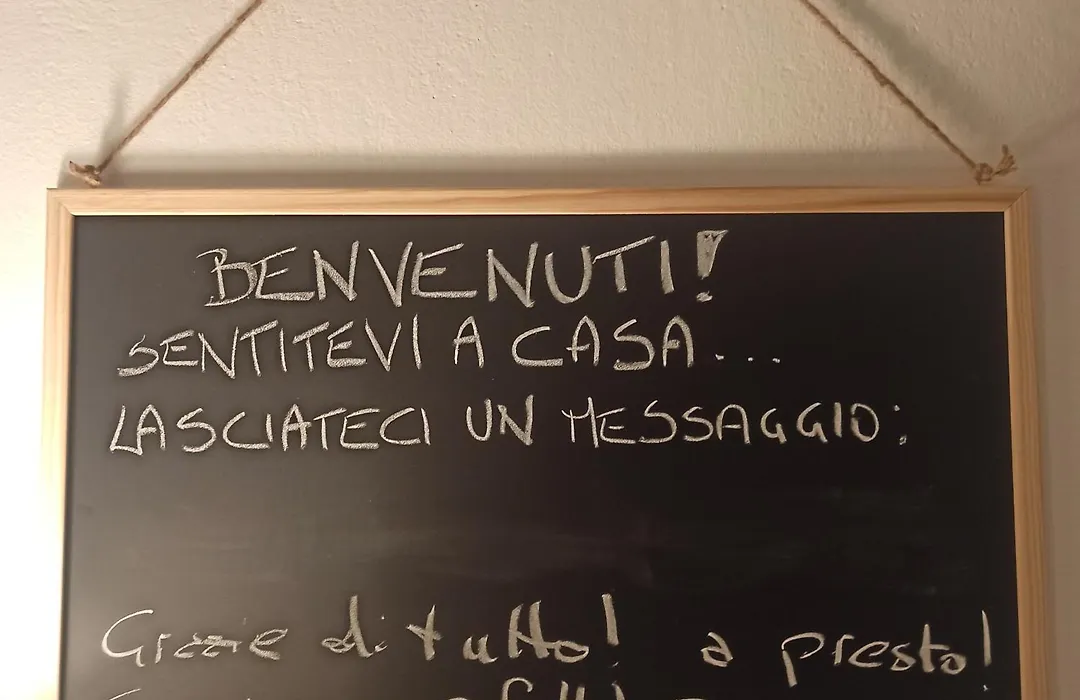 BENVENUTI!
SENTITEVI A CASA...
LASCIATECI UN MESSAGGIO:
Grazie di tutto! a presto!